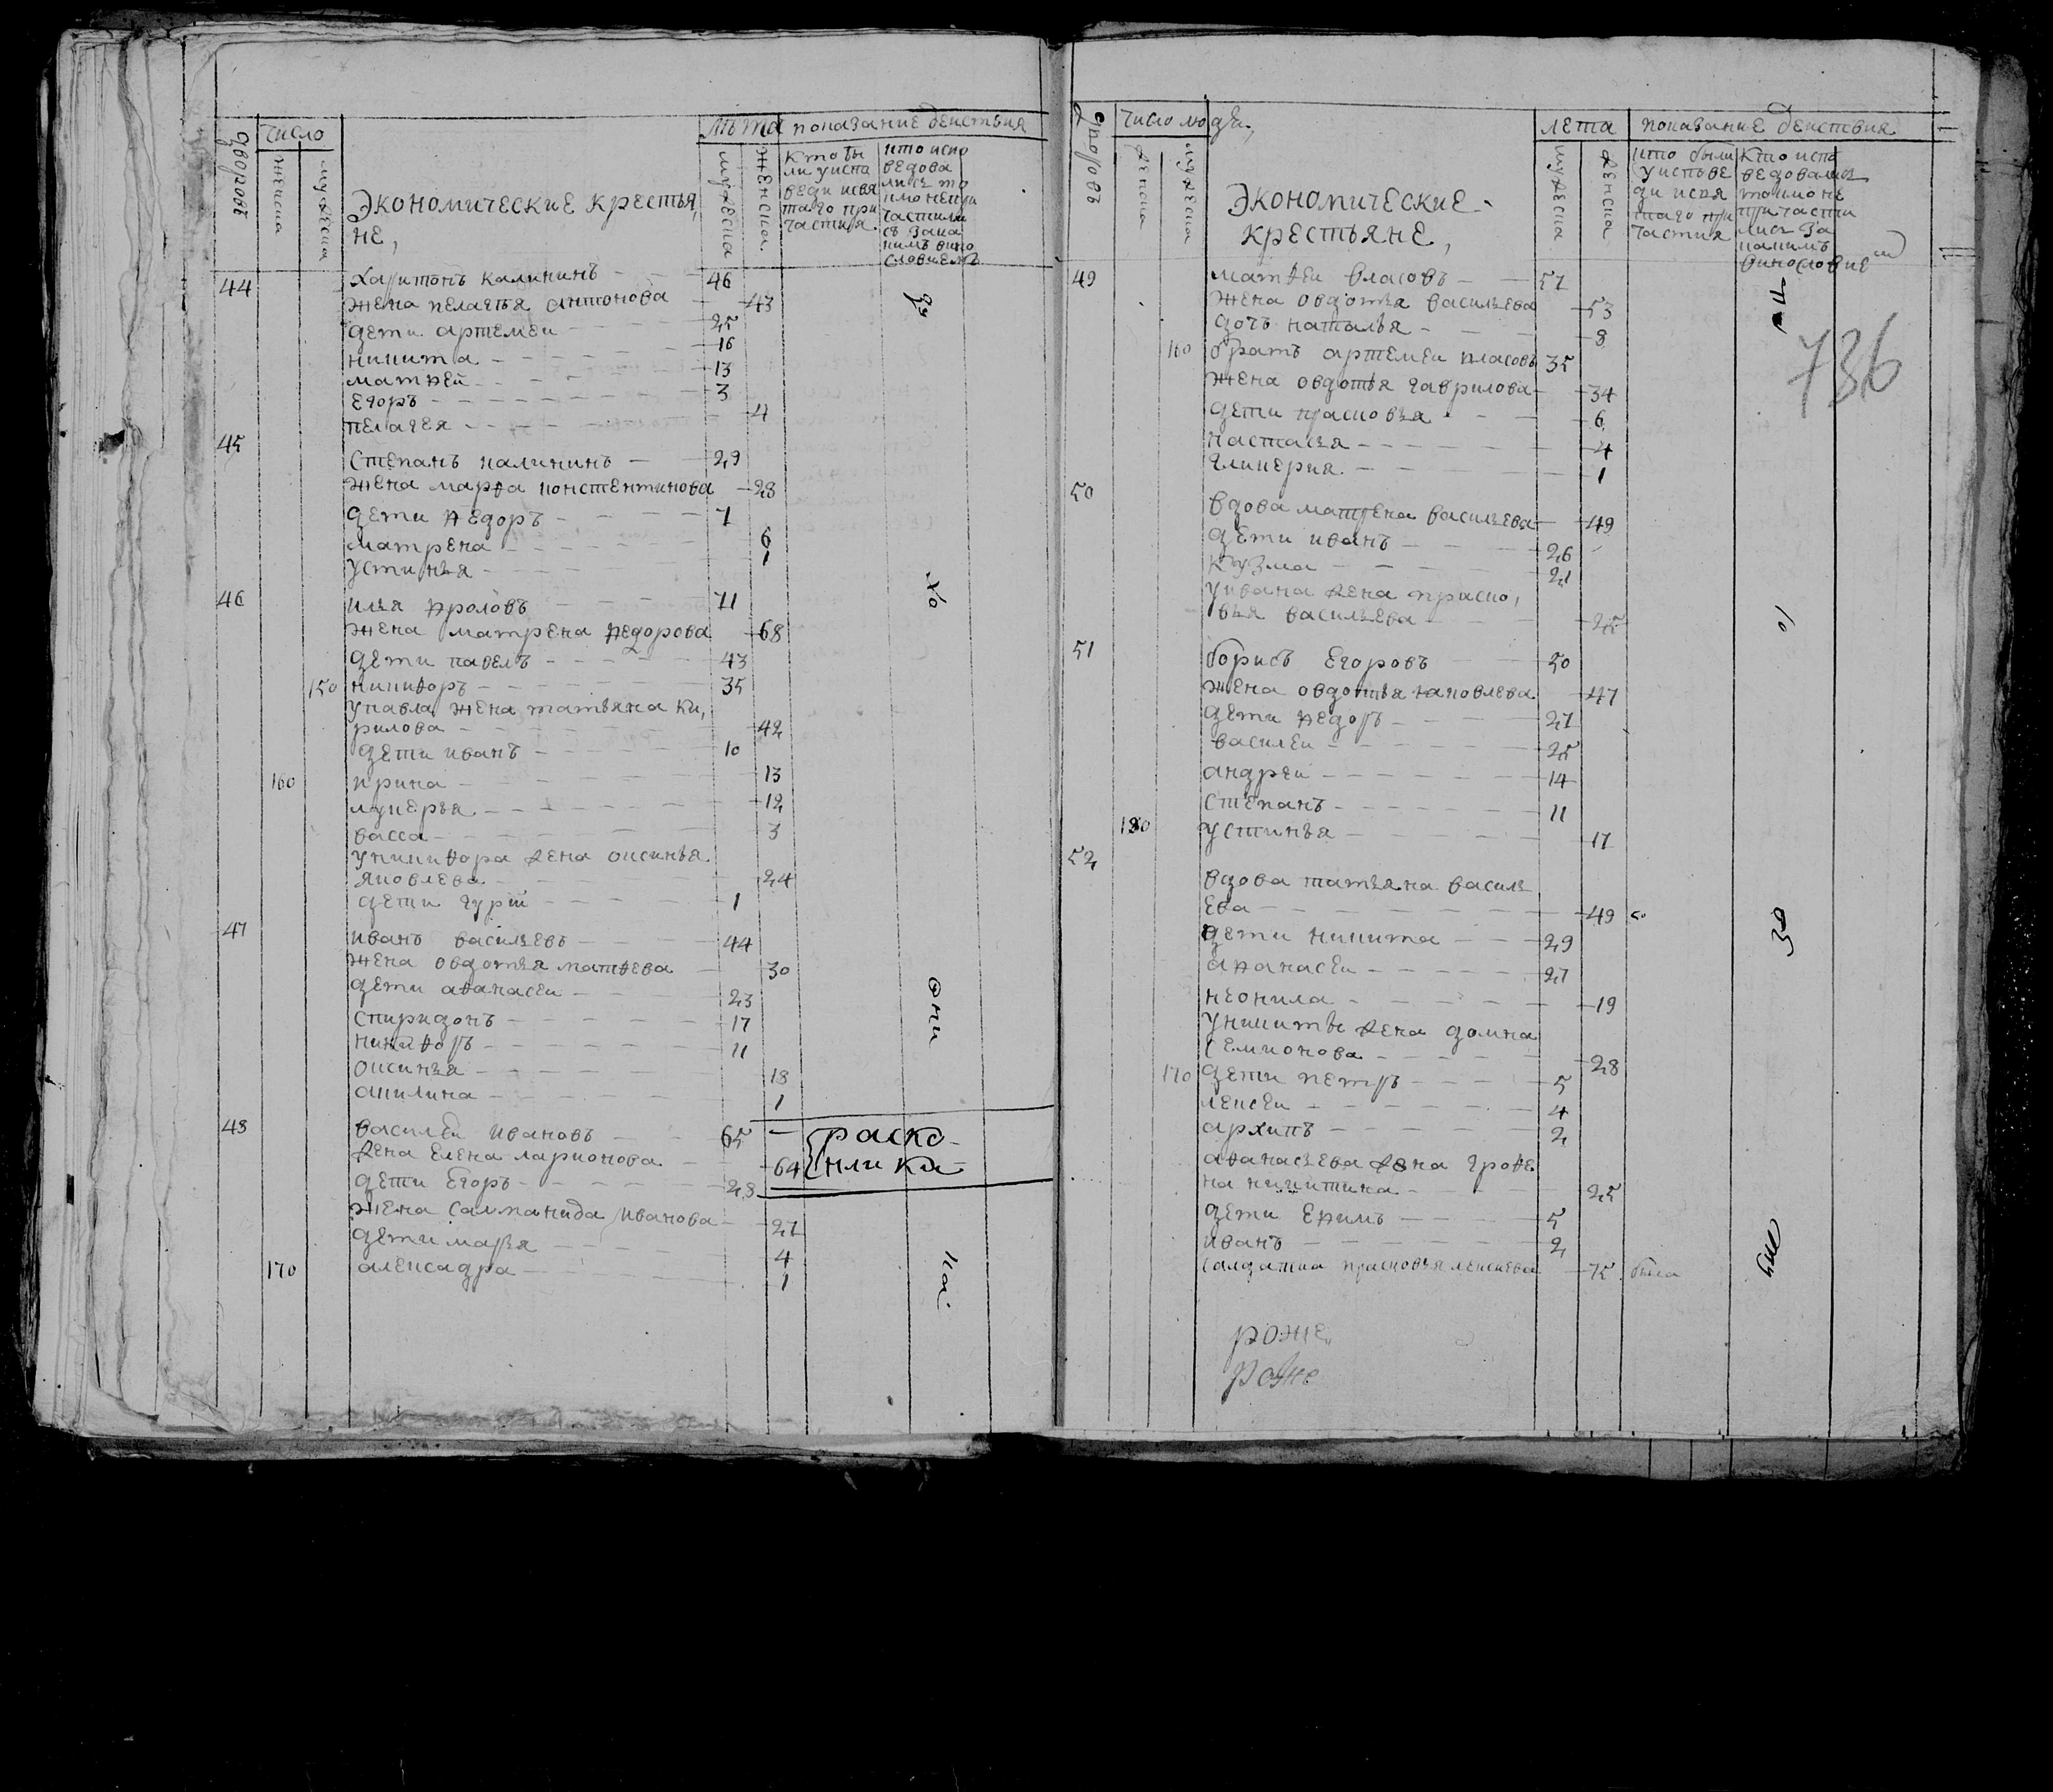 число
лѣта показание деиствия
дворовъ
женска
мужеска
Экономические крестья,
не,
мужеска
женска
кто бы
ли уиспа
веди исвя
таго при
частия
кто испо
ведова
лись то
кмо непри
частили
сь зака
кимъ вино
словиемъ
44 харитонъ калининъ 46
жена пелагья антонова 43
дети артемеи 25
никита 16
матѳей 13
егоръ 3
пелагея 4
45
степанъ калининъ 29
жена марѳа констентинова 28
дети ѳедоръ 7
матрена 6
устинья 1
46 илья ѳроловъ 71
жена матрена ѳедорова 68
дети павелъ 43
150 никиѳоръ 35
упавла жена татьяна ки,
рилова 42
дети иванъ 10
160 ирина 13
лукерья 12
васса 3
уникиѳора жена оксинья
яковлева 24
дети гурiй 1
47 иванъ васильевъ 44
жена овдотья матѳева 30
дети аѳанасеи 23
спиридонъ 17
никиѳоръ 11
оксинья 18
акилина 1
48 василеи ивановъ 65
жена елена ларионова 64
раско
лники
дети егоръ 28
жена саломанида иванова 27
дети марья 4
170 алексадра 1
они
дворовъ
число люде,
лета показание деиствия
женска
мужеска
Экономические
крестьяне,
мужеска
женска
кто были
уиспове
ди исвя
таго при
частия
кто испо
ведовались
токмо не
причасти
лись за
какимъ
винословием
736
49 матѳеи власовъ 57
жена овдотья васильева 53
дочь наталья 8
160 братъ артемеи власовъ 35
жена овдотья гаврилова 34
дети прасковья 6
настасья 4
гликерия 1
50
вдова матрена васильева 49
дети иванъ 26
кузма 21
уивана жена праско,
вья васильева 25
51
борисъ егоровъ 50
жена овдотья яковлева 47
дети ѳедоръ 27
василеи 25
андреи 14
степанъ 11
180 устинья 17
52
вдова татьяна василь
ева 49
дети никита 29
аѳанасеи 27
неонила 19
уникиты жена домна
семионова 28
170 дети петръ 5
лексеи 4
архипъ 2
аѳанасьева жена грѳе
на никитина 25
дети еѳимъ 5
иванъ 2
салдатка прасковья лексиева 75 была
роже,
роже